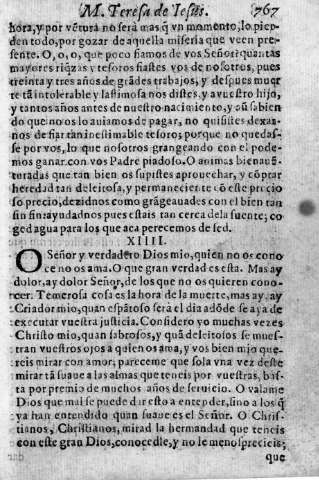 M. Teresa de Iesus. 767
hora, y por vētura no será mas q̃ vn momento, lo pier-
den todo, por gozar de aquella miseria que veen pre-
sente. O, o, o, que poco fiamos de vos Señor: quantas
mayores riq̃zas y tesoros fiastes vos de nosotros, pues
treinta y tres años de grādes trabajos, y despues muer
te tā intolerable y lastimosa nos distes, y a vuestro hijo,
y tantos años antes de nuestro nacimiento, y aū sabien
do que no os lo auiamos de pagar, no quisistes dexar-
nos de fiar tan inestimable tesoro, porque no quedas-
se por vos, lo que nosotros grangeando con el pode-
mos ganar con vos Padre piadoso. O animas bienauē
turadas que tan bien os supistes aprouechar, y cōprar
heredad tan deleitosa, y permaneciente cō este precio
so precio, dezidnos como grāgeauades con el bien tan
sin fin: ayudadnos pues estais tan cerca de la fuente, co
ged agua para los que aca perecemos de sed.
XIIII.
O Señor y verdadero Dios mio, quien no os cono
ce no os ama. O que gran verdad es esta. Mas ay
dolor, ay dolor Señor, de los que no os quieren cono-
cer. Temerosa cosa es la hora de la muerte, mas ay, ay
Criador mio, quan espātoso será el dia adōde se aya de
executar vuestra justicia. Considero yo muchas vezes
Christo mio, quan sabrosos, y quā deleitosos se mues-
tran vuestros ojos a quien os ama, y vos bien mio que-
reis mirar con amor, pareceme que sola vna vez deste
mirar tā suaue a las almas que teneis por vuestras, bas-
ta por premio de muchos años de seruicio. O valame
Dios que mal se puede dar esto a entender, sino a los q̃
ya han entendido quan suaue es el Señor. O Chris-
tianos, Christianos, mirad la hermandad que teneis
con este gran Dios, conocedle, y no le menosprecieis;
que